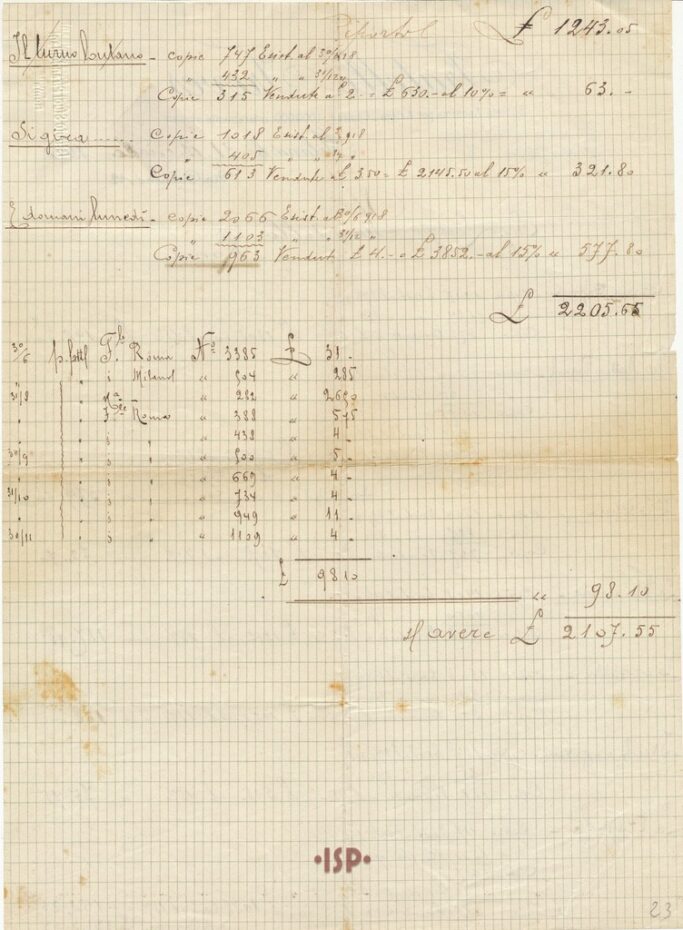 Riporto £ 1243.05
Il turno Lontano - copie 747 Esist. al 30/6 918
" 432 " " 31/12 "
Copie 315 Vendute a £ 2. = £ 630. - al 10% = " 63. -
Si gira ....... copie 1018 Esist. al 918
" 405 " " "
Copie 613 Vendute a £ 3.50 = £ 2145.50 al 15% " 321.80
E domani lunedì - copie 2066 Esist. al 30/6 918
" 1103 " " 31/12 "
Copie 963 Vendute £ 4. - £ 3852. - al 15% " 577.80
£ 2205.65
30/6 p. fatt F. Roma No 3385 £ 31.
" " " Milano " 904 " 285
30/8 " " 282 " 2690
" " Roma " 388 " 575
" " " " 438 " 4 -
30/9 " " " 500 " 5 -
" " " " 669 " 4 -
31/10 " " " 734 " 4 -
" " " " 949 " 11 -
30/11 " " " 1109 " 4 -
£ 98 10
" 98.10
avere £ 2107.55
•ISP•
23